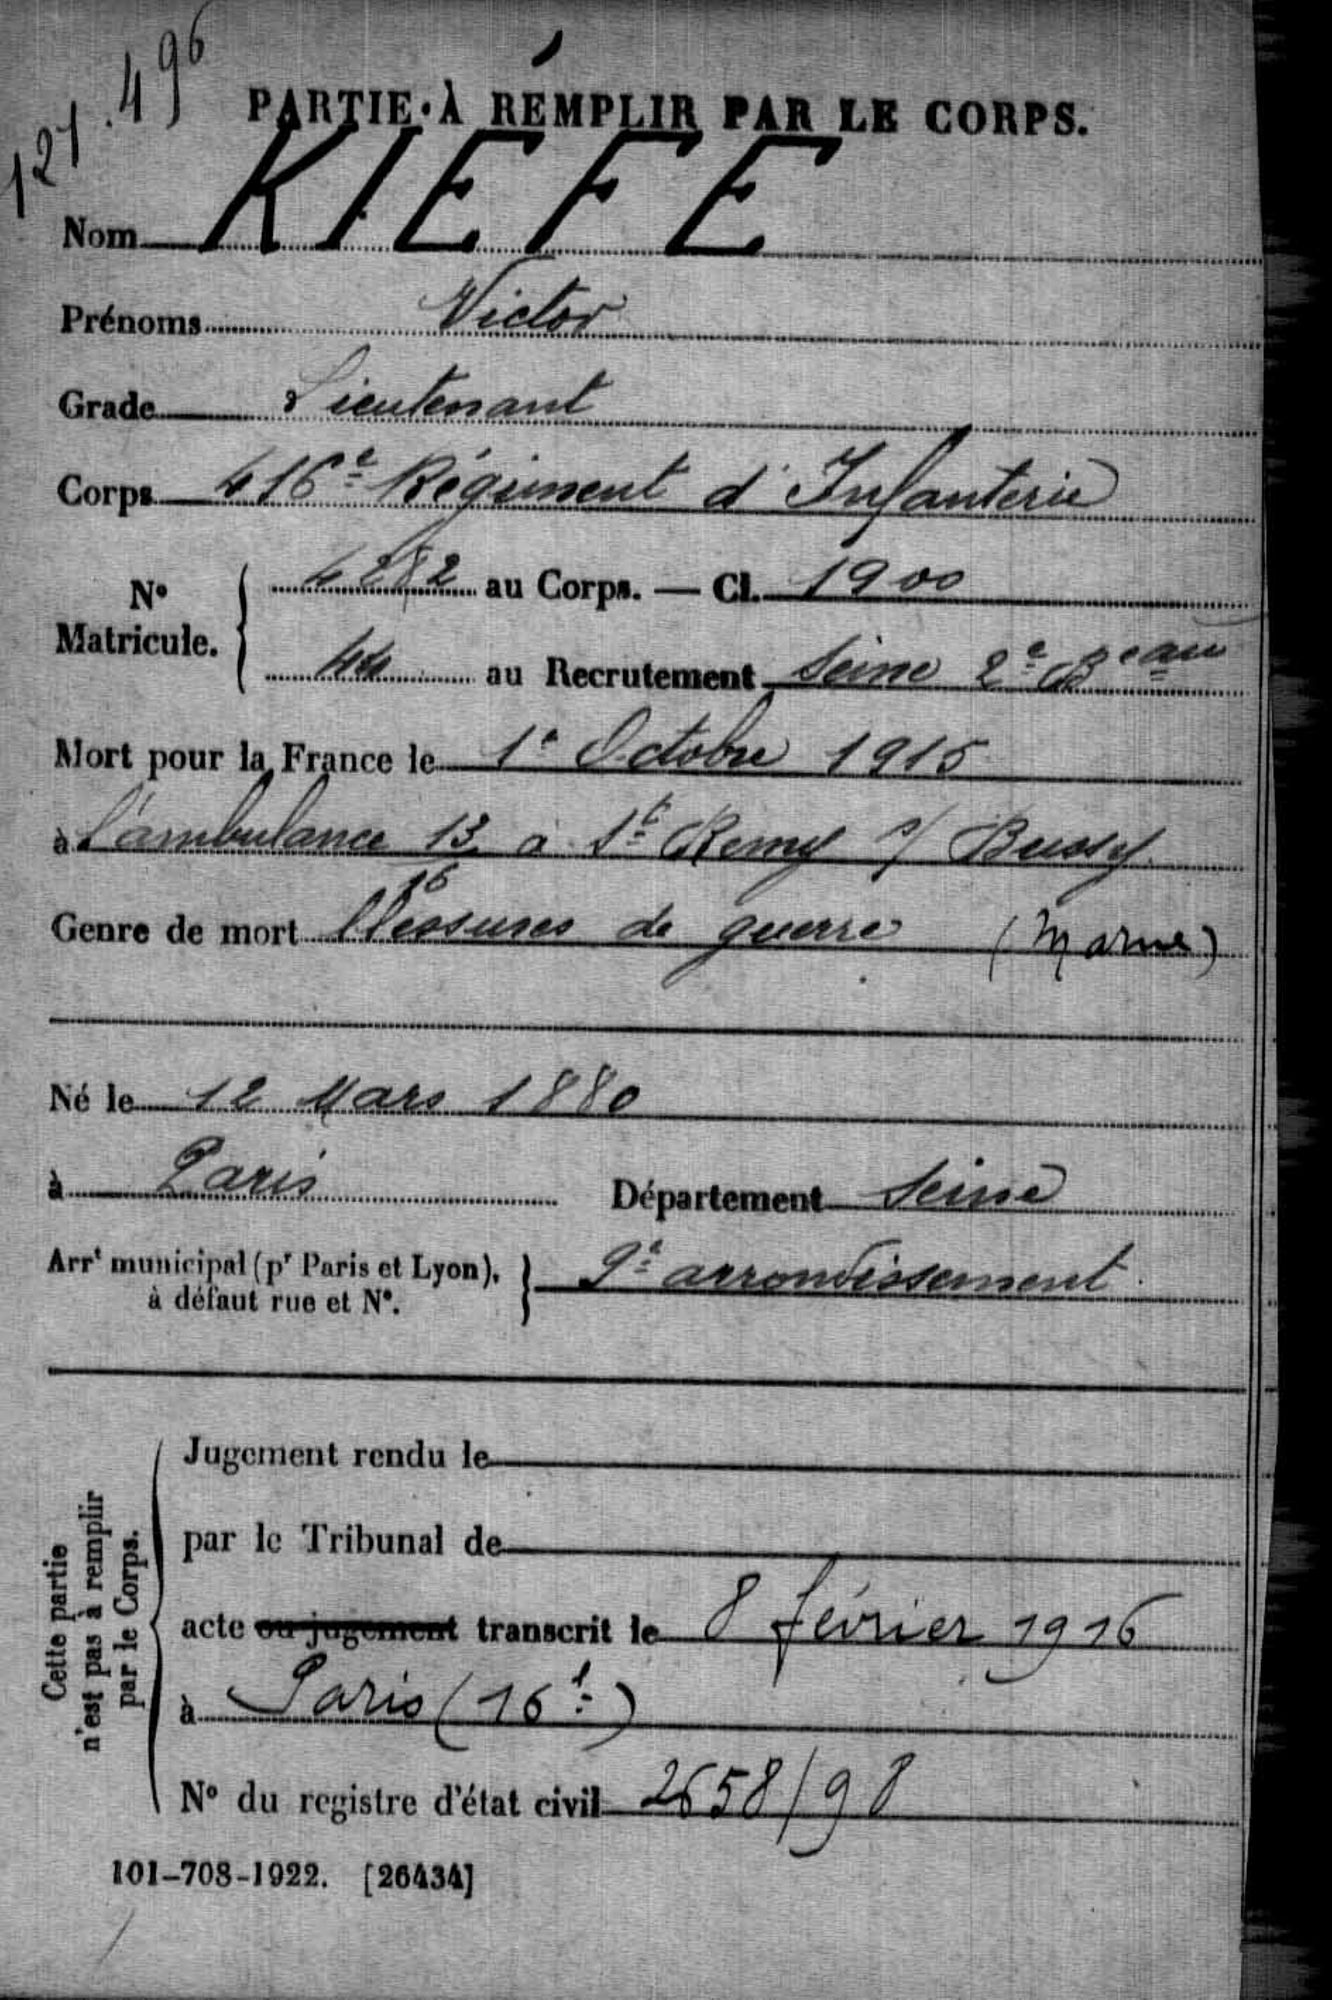 121.496
PARTIE À REMPLIR PAR LE CORPS.
Nom KIEFE
Prénoms Victor
Grade Lieutenant
Corps 416e Régiment d'Infanterie
N° Matricule. 4282 au Corps. — Cl. 1900
44 au Recrutement Seine 2e Beau
Mort pour la France le 1er Octobre 1915
à l'ambulance 13 à St Remy s/ Bussy
16
Genre de mort blessures de guerre (Marne)
Né le 12 Mars 1880
à Paris Département Seine
Arrt municipal (pr Paris et Lyon), à défaut rue et N°. 9e arrondissement.
Cette partie n'est pas à remplir par le Corps.
Jugement rendu le
par le Tribunal de
acte ou jugement transcrit le 8 février 1916
à Paris (16e)
N° du registre d'état civil 2658/98
101-708-1922. [26434]